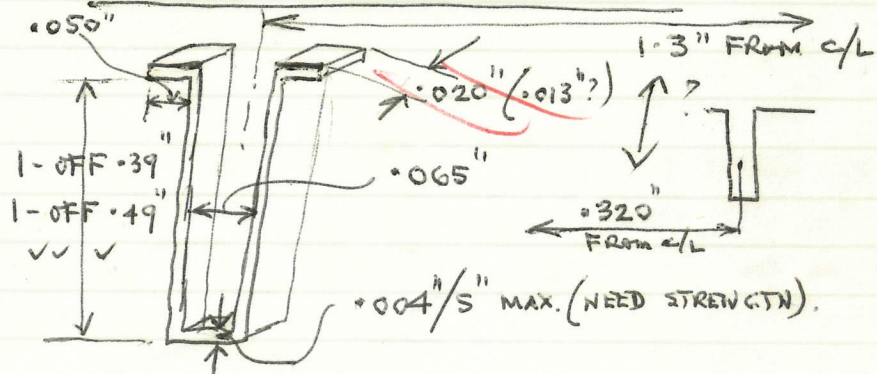 .050"
1.3" FROM C/L
.020" (.013"?)
?
1-OFF .39"
.065"
1-OFF .49"
.320"
FROM C/L
.004"/5" MAX. (NEED STRENGTH).